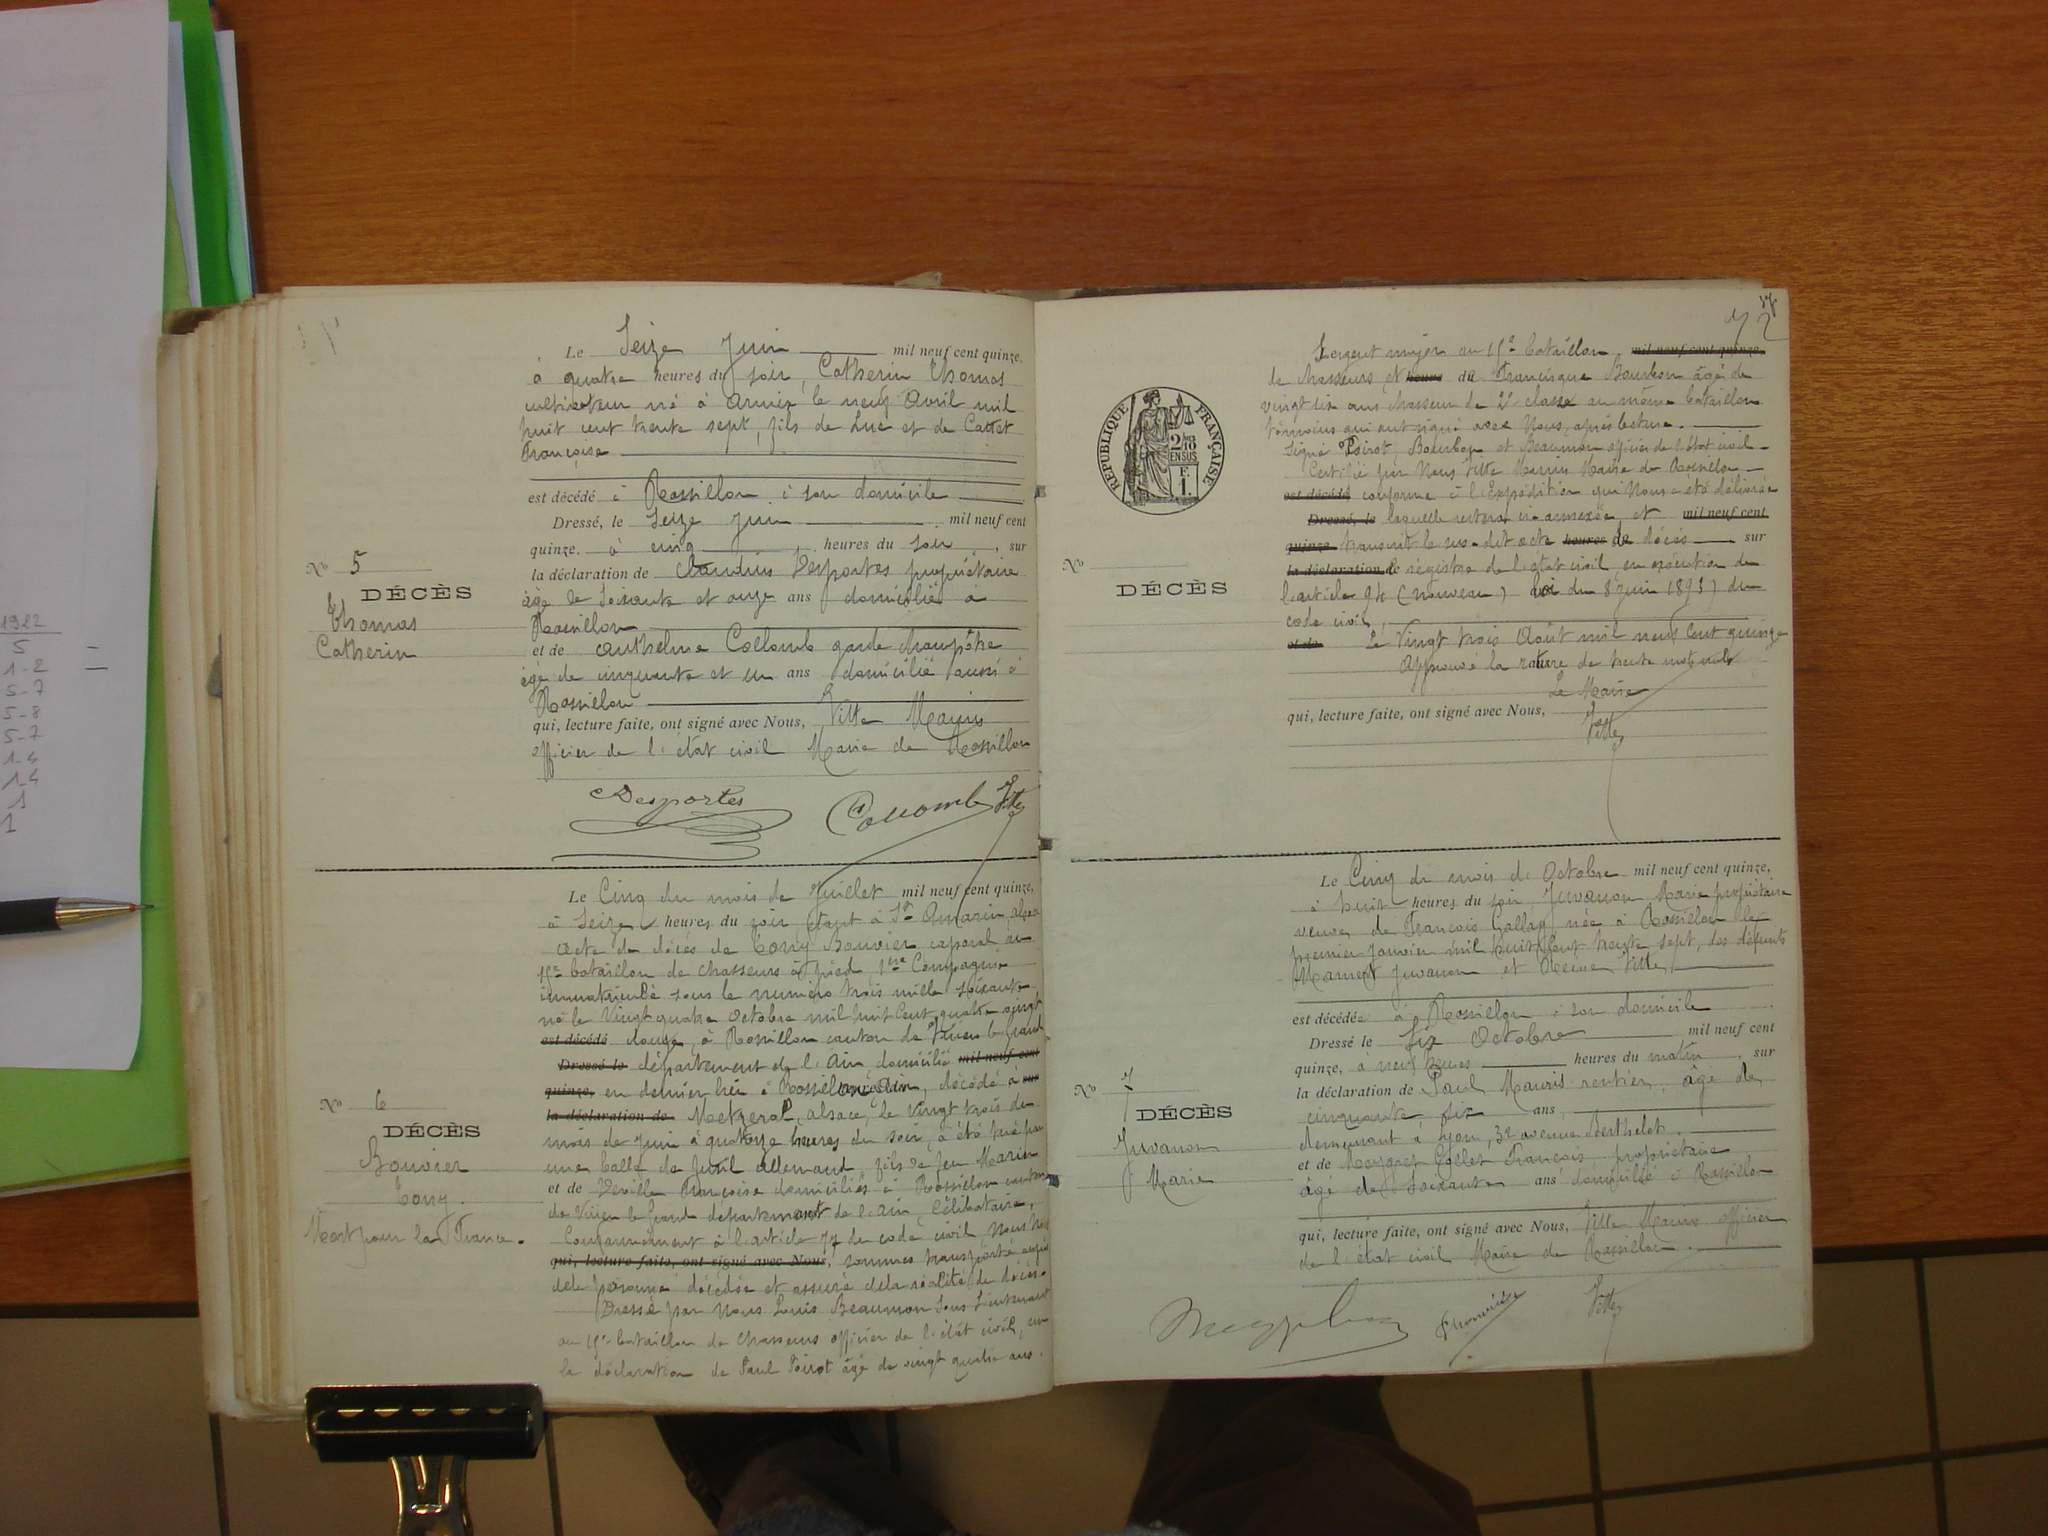 Le Seize Juin mil neuf cent quinze,
à quatre heures du soir, Catherin Thomas
cultivateur né à Armix le neuf Avril mil
huit cent trente sept, fils de Luc et de Cattet
Françoise
est décédé à Rossillon à son domicile
Dressé, le Seize Juin mil neuf cent
quinze, à cinq heures du soir, sur
la déclaration de Claudius Desportes propriétaire
âgé de soixante et onze ans domicilié à
Rossillon
et de Anthelme Collomb garde champêtre
âgé de cinquante et un ans domicilié aussi à
Rossillon
qui, lecture faite, ont signé avec Nous, Vitte Marius
officier de l'état civil Maire de Rossillon
No 5
DÉCÈS
Thomas
Catherin
Desportes Collomb Vitte
Le Cinq du mois de Juillet mil neuf cent quinze,
à Seize heures du soir étant à St Amarin, alsace
Acte de décès de Tony Bouvier caporal au
15e bataillon de chasseurs à pied, 1ère Compagnie
immatriculé sous le numéro trois mille soixante,
né le Vingt quatre Octobre mil huit cent quatre vingt
est décédé douze, à Rossillon canton de Virieu le Grand
Dressé le département de l'Ain, domicilié mil neuf cent
quinze, en dernier lieu à Rossillon Ain, décédé à sur
la déclaration de Metzeral, alsace, le Vingt trois du
mois de Juin à quatorze heures du soir, a été tué par
une balle de fusil allemand, fils de feu Marin
et de Françoise domiciliés à Rossillon canton
de Virieu le Grand département de l'Ain, Célibataire,
Conformément à l'article 77 du code civil Nous nous
qui, lecture faite, ont signé avec Nous, sommes transporté auprès
de la personne décédée et assuré de la réalité du décès.
Dressé par Nous Louis Beaumon Sous Lieutenant
au 15e bataillon de Chasseurs officier de l'état civil, sur
la déclaration de Paul Poirot âgé de vingt quatre ans.
No 6
DÉCÈS
Bouvier
Tony.
Mort pour la France.
72
Sergent major au 15e bataillon mil neuf cent quinze,
de chasseurs, et heures du de Francisque Bourbon âgé de
vingt six ans chasseur de 2e classe au même bataillon
témoins qui ont signé avec Nous, après lecture.
Signé Poirot, Bourbon et Beaumon officier de l'état civil
Certifié par Nous Vitte Marius Maire de Rossillon
est décédé conforme à l'Expédition qui Nous a été délivrée
Dressé, le laquelle restera ci-annexée et mil neuf cent
quinze transcrit le sus-dit acte heures de décès sur
la déclaration de le registre de l'état civil, en exécution de
l'article 94 (nouveau) loi du 8 Juin 1893) du
code civil,
et de Le Vingt trois Août mil neuf Cent quinze
Approuvé la rature de trente mots nuls
Le Maire
qui, lecture faite, ont signé avec Nous,
Vitte
RÉPUBLIQUE FRANÇAISE
2/10 EN SUS
F.
1.
No
DÉCÈS
Le Cinq du mois de Octobre mil neuf cent quinze,
à huit heures du soir, Juvanon Marie propriétaire
veuve de François Gallay née à Rossillon le
premier Janvier mil huit cent trente sept, des défunts
Mamert Juvanon et Reine Vitte
est décédée à Rossillon à son domicile
Dressé le Six Octobre mil neuf cent
quinze, à neuf heures heures du matin, sur
la déclaration de Paul Mauris rentier, âgé de
cinquante six ans,
demeurant à Lyon, 32 avenue Berthelot.
et de François propriétaire
âgé de soixante ans domicilié à Rossillon
qui, lecture faite, ont signé avec Nous, Vitte Marius officier
de l'état civil Maire de Rossillon.
No 7
DÉCÈS
Juvanon
Marie
Vitte
1922
5
1-2
5-7
5-8
5-7
1-4
1-4
1
1